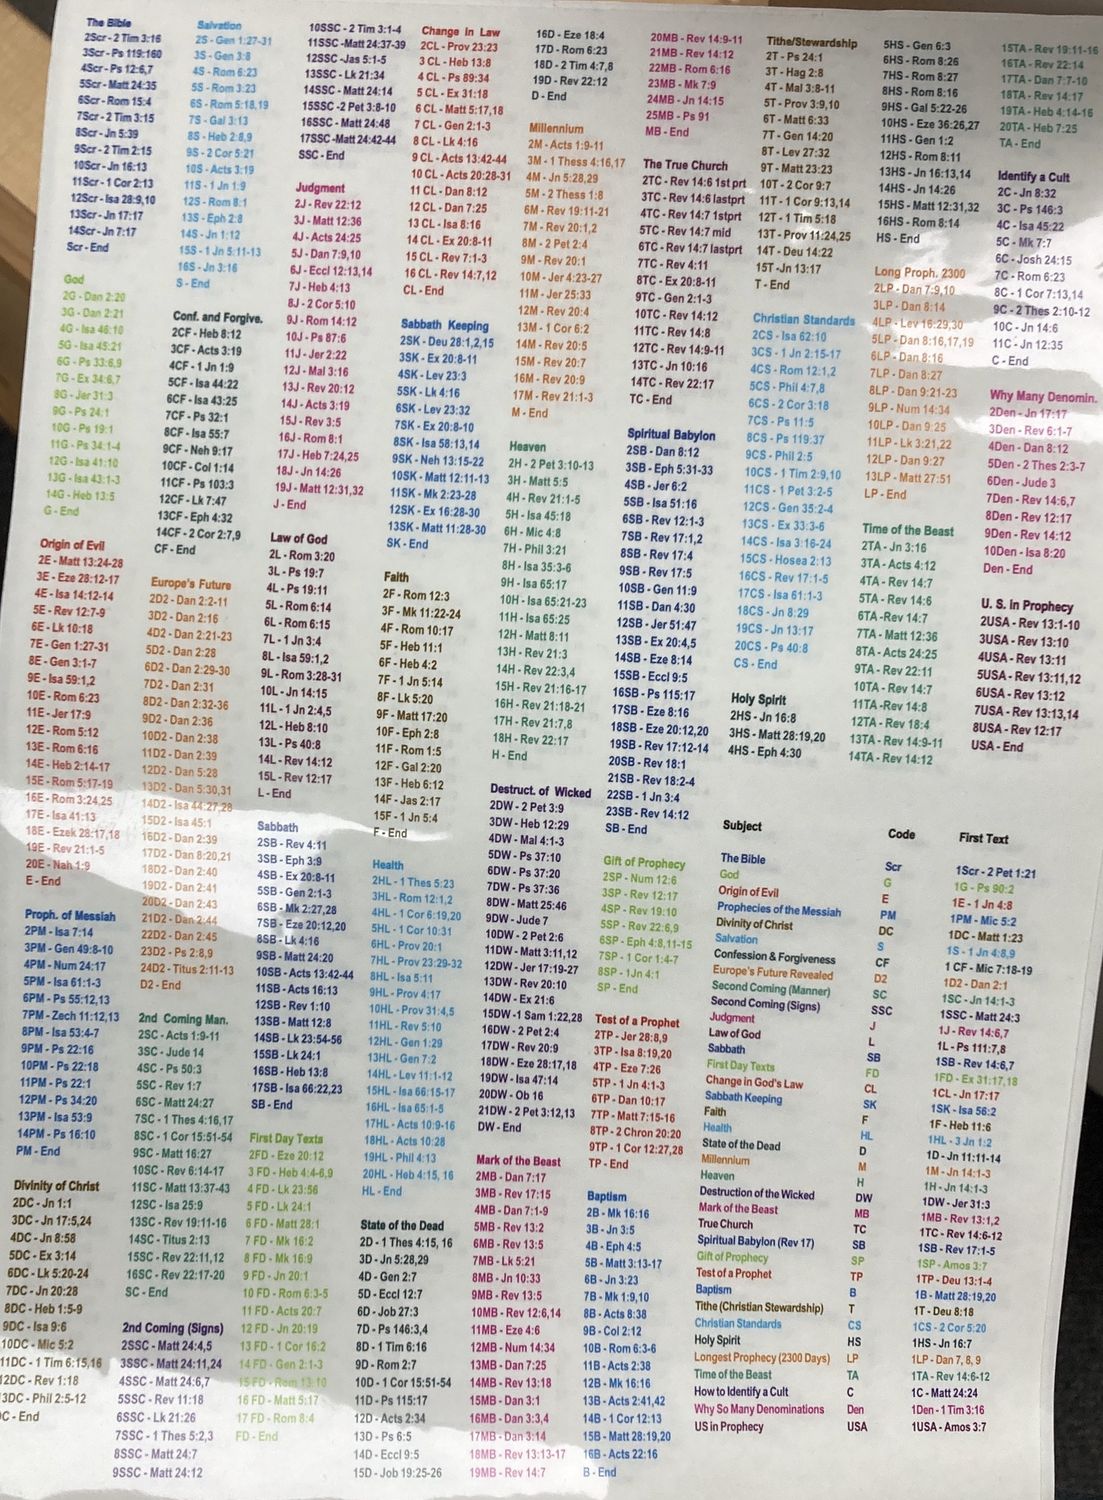 The Bible
2Scr - 2 Tim 3:16
3Scr - Ps 119:160
4Scr - Ps 12:6,7
5Scr - Matt 24:35
6Scr - Rom 15:4
7Scr - 2 Tim 3:15
8Scr - Jn 5:39
9Scr - 2 Tim 2:15
10Scr - Jn 16:13
11Scr - 1 Cor 2:13
12Scr - Isa 28:9,10
13Scr - Jn 17:17
14Scr - Jn 7:17
Scr - End
God
2G - Dan 2:20
3G - Dan 2:21
4G - Isa 46:10
5G - Isa 45:21
6G - Ps 33:6,9
7G - Ex 34:6,7
8G - Jer 31:3
9G - Ps 24:1
10G - Ps 19:1
11G - Ps 34:1-4
12G - Isa 41:10
13G - Isa 43:1-3
14G - Heb 13:5
G - End
Origin of Evil
2E - Matt 13:24-28
3E - Eze 28:12-17
4E - Isa 14:12-14
5E - Rev 12:7-9
6E - Lk 10:18
7E - Gen 1:27-31
8E - Gen 3:1-7
9E - Isa 59:1,2
10E - Rom 6:23
11E - Jer 17:9
12E - Rom 5:12
13E - Rom 6:16
14E - Heb 2:14-17
15E - Rom 5:17-19
16E - Rom 3:24,25
17E - Isa 41:13
18E - Ezek 28:17,18
19E - Rev 21:1-5
20E - Nah 1:9
E - End
Proph. of Messiah
2PM - Isa 7:14
3PM - Gen 49:8-10
4PM - Num 24:17
5PM - Isa 61:1-3
6PM - Ps 55:12,13
7PM - Zech 11:12,13
8PM - Isa 53:4-7
9PM - Ps 22:16
10PM - Ps 22:18
11PM - Ps 22:1
12PM - Ps 34:20
13PM - Isa 53:9
14PM - Ps 16:10
PM - End
Divinity of Christ
2DC - Jn 1:1
3DC - Jn 17:5,24
4DC - Jn 8:58
5DC - Ex 3:14
6DC - Lk 5:20-24
7DC - Jn 20:28
8DC - Heb 1:5-9
9DC - Isa 9:6
10DC - Mic 5:2
11DC - 1 Tim 6:15,16
12DC - Rev 1:18
3DC - Phil 2:5-12
C - End
Salvation
2S - Gen 1:27-31
3S - Gen 3:8
4S - Rom 6:23
5S - Rom 3:23
6S - Rom 5:18,19
7S - Gal 3:13
8S - Heb 2:8,9
9S - 2 Cor 5:21
10S - Acts 3:19
11S - 1 Jn 1:9
12S - Rom 8:1
13S - Eph 2:8
14S - Jn 1:12
15S - 1 Jn 5:11-13
16S - Jn 3:16
S - End
Conf. and Forgive.
2CF - Heb 8:12
3CF - Acts 3:19
4CF - 1 Jn 1:9
5CF - Isa 44:22
6CF - Isa 43:25
7CF - Ps 32:1
8CF - Isa 55:7
9CF - Neh 9:17
10CF - Col 1:14
11CF - Ps 103:3
12CF - Lk 7:47
13CF - Eph 4:32
14CF - 2 Cor 2:7,9
CF - End
Europe's Future
2D2 - Dan 2:2-11
3D2 - Dan 2:16
4D2 - Dan 2:21-23
5D2 - Dan 2:28
6D2 - Dan 2:29-30
7D2 - Dan 2:31
8D2 - Dan 2:32-36
9D2 - Dan 2:36
10D2 - Dan 2:38
11D2 - Dan 2:39
12D2 - Dan 5:28
13D2 - Dan 5:30,31
14D2 - Isa 44:27,28
15D2 - Isa 45:1
16D2 - Dan 2:39
17D2 - Dan 8:20,21
18D2 - Dan 2:40
19D2 - Dan 2:41
20D2 - Dan 2:43
21D2 - Dan 2:44
22D2 - Dan 2:45
23D2 - Ps 2:8,9
24D2 - Titus 2:11-13
D2 - End
2nd Coming Man.
2SC - Acts 1:9-11
3SC - Jude 14
4SC - Ps 50:3
5SC - Rev 1:7
6SC - Matt 24:27
7SC - 1 Thes 4:16,17
8SC - 1 Cor 15:51-54
9SC - Matt 16:27
10SC - Rev 6:14-17
11SC - Matt 13:37-43
12SC - Isa 25:9
13SC - Rev 19:11-16
14SC - Titus 2:13
15SC - Rev 22:11,12
16SC - Rev 22:17-20
SC - End
2nd Coming (Signs)
2SSC - Matt 24:4,5
3SSC - Matt 24:11,24
4SSC - Matt 24:6,7
5SSC - Rev 11:18
6SSC - Lk 21:26
7SSC - 1 Thes 5:2,3
8SSC - Matt 24:7
9SSC - Matt 24:12
10SSC - 2 Tim 3:1-4
11SSC - Matt 24:37-39
12SSC - Jas 5:1-5
13SSC - Lk 21:34
14SSC - Matt 24:14
15SSC - 2 Pet 3:8-10
16SSC - Matt 24:48
17SSC - Matt 24:42-44
SSC - End
Judgment
2J - Rev 22:12
3J - Matt 12:36
4J - Acts 24:25
5J - Dan 7:9,10
6J - Eccl 12:13,14
7J - Heb 4:13
8J - 2 Cor 5:10
9J - Rom 14:12
10J - Ps 87:6
11J - Jer 2:22
12J - Mal 3:16
13J - Rev 20:12
14J - Acts 3:19
15J - Rev 3:5
16J - Rom 8:1
17J - Heb 7:24,25
18J - Jn 14:26
19J - Matt 12:31,32
J - End
Law of God
2L - Rom 3:20
3L - Ps 19:7
4L - Ps 19:11
5L - Rom 6:14
6L - Rom 6:15
7L - 1 Jn 3:4
8L - Isa 59:1,2
9L - Rom 3:28-31
10L - Jn 14:15
11L - 1 Jn 2:4,5
12L - Heb 8:10
13L - Ps 40:8
14L - Rev 14:12
15L - Rev 12:17
L - End
Sabbath
2SB - Rev 4:11
3SB - Eph 3:9
4SB - Ex 20:8-11
5SB - Gen 2:1-3
6SB - Mk 2:27,28
7SB - Eze 20:12,20
8SB - Lk 4:16
9SB - Matt 24:20
10SB - Acts 13:42-44
11SB - Acts 16:13
12SB - Rev 1:10
13SB - Matt 12:8
14SB - Lk 23:54-56
15SB - Lk 24:1
16SB - Heb 13:8
17SB - Isa 66:22,23
SB - End
First Day Texts
2FD - Eze 20:12
3 FD - Heb 4:4-6,9
4 FD - Lk 23:56
5 FD - Lk 24:1
6 FD - Matt 28:1
7 FD - Mk 16:2
8 FD - Mk 16:9
9 FD - Jn 20:1
10 FD - Rom 6:3-5
11 FD - Acts 20:7
12 FD - Jn 20:19
13 FD - 1 Cor 16:2
14 FD - Gen 2:1-3
15 FD - Rom 13:10
16 FD - Matt 5:17
17 FD - Rom 8:4
FD - End
Change in Law
2CL - Prov 23:23
3 CL - Heb 13:8
4 CL - Ps 89:34
5 CL - Ex 31:18
6 CL - Matt 5:17,18
7 CL - Gen 2:1-3
8 CL - Lk 4:16
9 CL - Acts 13:42-44
10 CL - Acts 20:28-31
11 CL - Dan 8:12
12 CL - Dan 7:25
13 CL - Isa 8:16
14 CL - Ex 20:8-11
15 CL - Rev 7:1-3
16 CL - Rev 14:7,12
CL - End
Sabbath Keeping
2SK - Deu 28:1,2,15
3SK - Ex 20:8-11
4SK - Lev 23:3
5SK - Lk 4:16
6SK - Lev 23:32
7SK - Ex 20:8-10
8SK - Isa 58:13,14
9SK - Neh 13:15-22
10SK - Matt 12:11-13
11SK - Mk 2:23-28
12SK - Ex 16:28-30
13SK - Matt 11:28-30
SK - End
Faith
2F - Rom 12:3
3F - Mk 11:22-24
4F - Rom 10:17
5F - Heb 11:1
6F - Heb 4:2
7F - 1 Jn 5:14
8F - Lk 5:20
9F - Matt 17:20
10F - Eph 2:8
11F - Rom 1:5
12F - Gal 2:20
13F - Heb 6:12
14F - Jas 2:17
15F - 1 Jn 5:4
F - End
Health
2HL - 1 Thes 5:23
3HL - Rom 12:1,2
4HL - 1 Cor 6:19,20
5HL - 1 Cor 10:31
6HL - Prov 20:1
7HL - Prov 23:29-32
8HL - Isa 5:11
9HL - Prov 4:17
10HL - Prov 31:4,5
11HL - Rev 5:10
12HL - Gen 1:29
13HL - Gen 7:2
14HL - Lev 11:1-12
15HL - Isa 66:15-17
16HL - Isa 65:1-5
17HL - Acts 10:9-16
18HL - Acts 10:28
19HL - Phil 4:13
20HL - Heb 4:15, 16
HL - End
State of the Dead
2D - 1 Thes 4:15, 16
3D - Jn 5:28,29
4D - Gen 2:7
5D - Ecl 12:7
6D - Job 27:3
7D - Ps 146:3,4
8D - 1 Tim 6:16
9D - Rom 2:7
10D - 1 Cor 15:51-54
11D - Ps 115:17
12D - Acts 2:34
13D - Ps 6:5
14D - Eccl 9:5
15D - Job 19:25-26
16D - Eze 18:4
17D - Rom 6:23
18D - 2 Tim 4:7,8
19D - Rev 22:12
D - End
Millennium
2M - Acts 1:9-11
3M - 1 Thess 4:16,17
4M - Jn 5:28,29
5M - 2 Thess 1:8
6M - Rev 19:11-21
7M - Rev 20:1,2
8M - 2 Pet 2:4
9M - Rev 20:1
10M - Jer 4:23-27
11M - Jer 25:33
12M - Rev 20:4
13M - 1 Cor 6:2
14M - Rev 20:5
15M - Rev 20:7
16M - Rev 20:9
17M - Rev 21:1-3
M - End
Heaven
2H - 2 Pet 3:10-13
3H - Matt 5:5
4H - Rev 21:1-5
5H - Isa 45:18
6H - Mic 4:8
7H - Phil 3:21
8H - Isa 35:3-6
9H - Isa 65:17
10H - Isa 65:21-23
11H - Isa 65:25
12H - Matt 8:11
13H - Rev 21:3
14H - Rev 22:3,4
15H - Rev 21:16-17
16H - Rev 21:18-21
17H - Rev 21:7,8
18H - Rev 22:17
H - End
Destruct. of Wicked
2DW - 2 Pet 3:9
3DW - Heb 12:29
4DW - Mal 4:1-3
5DW - Ps 37:10
6DW - Ps 37:20
7DW - Ps 37:36
8DW - Matt 25:46
9DW - Jude 7
10DW - 2 Pet 2:6
11DW - Matt 3:11,12
12DW - Jer 17:19-27
13DW - Rev 20:10
14DW - Ex 21:6
15DW - 1 Sam 1:22,28
16DW - 2 Pet 2:4
17DW - Rev 20:9
18DW - Eze 28:17,18
19DW - Isa 47:14
20DW - Ob 16
21DW - 2 Pet 3:12,13
DW - End
Mark of the Beast
2MB - Dan 7:17
3MB - Rev 17:15
4MB - Dan 7:1-9
5MB - Rev 13:2
6MB - Rev 13:5
7MB - Lk 5:21
8MB - Jn 10:33
9MB - Rev 13:5
10MB - Rev 12:6,14
11MB - Eze 4:6
12MB - Num 14:34
13MB - Dan 7:25
14MB - Rev 13:18
15MB - Dan 3:1
16MB - Dan 3:3,4
17MB - Dan 3:14
18MB - Rev 13:13-17
19MB - Rev 14:7
20MB - Rev 14:9-11
21MB - Rev 14:12
22MB - Rom 6:16
23MB - Mk 7:9
24MB - Jn 14:15
25MB - Ps 91
MB - End
The True Church
2TC - Rev 14:6 1st prt
3TC - Rev 14:6 lastprt
4TC - Rev 14:7 1stprt
5TC - Rev 14:7 mid
6TC - Rev 14:7 lastprt
7TC - Rev 4:11
8TC - Ex 20:8-11
9TC - Gen 2:1-3
10TC - Rev 14:12
11TC - Rev 14:8
12TC - Rev 14:9-11
13TC - Jn 10:16
14TC - Rev 22:17
TC - End
Spiritual Babylon
2SB - Dan 8:12
3SB - Eph 5:31-33
4SB - Jer 6:2
5SB - Isa 51:16
6SB - Rev 12:1-3
7SB - Rev 17:1,2
8SB - Rev 17:4
9SB - Rev 17:5
10SB - Gen 11:9
11SB - Dan 4:30
12SB - Jer 51:47
13SB - Ex 20:4,5
14SB - Eze 8:14
15SB - Eccl 9:5
16SB - Ps 115:17
17SB - Eze 8:16
18SB - Eze 20:12,20
19SB - Rev 17:12-14
20SB - Rev 18:1
21SB - Rev 18:2-4
22SB - 1 Jn 3:4
23SB - Rev 14:12
SB - End
Gift of Prophecy
2SP - Num 12:6
3SP - Rev 12:17
4SP - Rev 19:10
5SP - Rev 22:6,9
6SP - Eph 4:8,11-15
7SP - 1 Cor 1:4-7
8SP - 1Jn 4:1
SP - End
Test of a Prophet
2TP - Jer 28:8,9
3TP - Isa 8:19,20
4TP - Eze 7:26
5TP - 1 Jn 4:1-3
6TP - Dan 10:17
7TP - Matt 7:15-16
8TP - 2 Chron 20:20
9TP - 1 Cor 12:27,28
TP - End
Baptism
2B - Mk 16:16
3B - Jn 3:5
4B - Eph 4:5
5B - Matt 3:13-17
6B - Jn 3:23
7B - Mk 1:9,10
8B - Acts 8:38
9B - Col 2:12
10B - Rom 6:3-6
11B - Acts 2:38
12B - Mk 16:16
13B - Acts 2:41,42
14B - 1 Cor 12:13
15B - Matt 28:19,20
16B - Acts 22:16
B - End
Tithe/Stewardship
2T - Ps 24:1
3T - Hag 2:8
4T - Mal 3:8-11
5T - Prov 3:9,10
6T - Matt 6:33
7T - Gen 14:20
8T - Lev 27:32
9T - Matt 23:23
10T - 2 Cor 9:7
11T - 1 Cor 9:13,14
12T - 1 Tim 5:18
13T - Prov 11:24,25
14T - Deu 14:22
15T - Jn 13:17
T - End
Christian Standards
2CS - Isa 62:10
3CS - 1 Jn 2:15-17
4CS - Rom 12:1,2
5CS - Phil 4:7,8
6CS - 2 Cor 3:18
7CS - Ps 11:5
8CS - Ps 119:37
9CS - Phil 2:5
10CS - 1 Tim 2:9,10
11CS - 1 Pet 3:2-5
12CS - Gen 35:2-4
13CS - Ex 33:3-6
14CS - Isa 3:16-24
15CS - Hosea 2:13
16CS - Rev 17:1-5
17CS - Isa 61:1-3
18CS - Jn 8:29
19CS - Jn 13:17
20CS - Ps 40:8
CS - End
Holy Spirit
2HS - Jn 16:8
3HS - Matt 28:19,20
4HS - Eph 4:30
5HS - Gen 6:3
6HS - Rom 8:26
7HS - Rom 8:27
8HS - Rom 8:16
9HS - Gal 5:22-26
10HS - Eze 36:26,27
11HS - Gen 1:2
12HS - Rom 8:11
13HS - Jn 16:13,14
14HS - Jn 14:26
15HS - Matt 12:31,32
16HS - Rom 8:14
HS - End
Long Proph. 2300
2LP - Dan 7:9,10
3LP - Dan 8:14
4LP - Lev 16:29,30
5LP - Dan 8:16,17,19
6LP - Dan 8:16
7LP - Dan 8:27
8LP - Dan 9:21-23
9LP - Num 14:34
10LP - Dan 9:25
11LP - Lk 3:21,22
12LP - Dan 9:27
13LP - Matt 27:51
LP - End
Time of the Beast
2TA - Jn 3:16
3TA - Acts 4:12
4TA - Rev 14:7
5TA - Rev 14:6
6TA - Rev 14:7
7TA - Matt 12:36
8TA - Acts 24:25
9TA - Rev 22:11
10TA - Rev 14:7
11TA - Rev 14:8
12TA - Rev 18:4
13TA - Rev 14:9-11
14TA - Rev 14:12
15TA - Rev 19:11-16
16TA - Rev 22:14
17TA - Dan 7:7-10
18TA - Rev 14:17
19TA - Heb 4:14-16
20TA - Heb 7:25
TA - End
Identify a Cult
2C - Jn 8:32
3C - Ps 146:3
4C - Isa 45:22
5C - Mk 7:7
6C - Josh 24:15
7C - Rom 6:23
8C - 1 Cor 7:13,14
9C - 2 Thes 2:10-12
10C - Jn 14:6
11C - Jn 12:35
C - End
Why Many Denomin.
2Den - Jn 17:17
3Den - Rev 6:1-7
4Den - Dan 8:12
5Den - 2 Thes 2:3-7
6Den - Jude 3
7Den - Rev 14:6,7
8Den - Rev 12:17
9Den - Rev 14:12
10Den - Isa 8:20
Den - End
U. S. in Prophecy
2USA - Rev 13:1-10
3USA - Rev 13:10
4USA - Rev 13:11
5USA - Rev 13:11,12
6USA - Rev 13:12
7USA - Rev 13:13,14
8USA - Rev 12:17
USA - End
Subject Code First Text
The Bible Scr 1Scr - 2 Pet 1:21
God G 1G - Ps 90:2
Origin of Evil E 1E - 1 Jn 4:8
Prophecies of the Messiah PM 1PM - Mic 5:2
Divinity of Christ DC 1DC - Matt 1:23
Salvation S 1S - 1 Jn 4:8,9
Confession & Forgiveness CF 1 CF - Mic 7:18-19
Europe's Future Revealed D2 1D2 - Dan 2:1
Second Coming (Manner) SC 1SC - Jn 14:1-3
Second Coming (Signs) SSC 1SSC - Matt 24:3
Judgment J 1J - Rev 14:6,7
Law of God L 1L - Ps 111:7,8
Sabbath SB 1SB - Rev 14:6,7
First Day Texts FD 1FD - Ex 31:17,18
Change in God's Law CL 1CL - Jn 17:17
Sabbath Keeping SK 1SK - Isa 56:2
Faith F 1F - Heb 11:6
Health HL 1HL - 3 Jn 1:2
State of the Dead D 1D - Jn 11:11-14
Millennium M 1M - Jn 14:1-3
Heaven H 1H - Jn 14:1-3
Destruction of the Wicked DW 1DW - Jer 31:3
Mark of the Beast MB 1MB - Rev 13:1,2
True Church TC 1TC - Rev 14:6-12
Spiritual Babylon (Rev 17) SB 1SB - Rev 17:1-5
Gift of Prophecy SP 1SP - Amos 3:7
Test of a Prophet TP 1TP - Deu 13:1-4
Baptism B 1B - Matt 28:19,20
Tithe (Christian Stewardship) T 1T - Deu 8:18
Christian Standards CS 1CS - 2 Cor 5:20
Holy Spirit HS 1HS - Jn 16:7
Longest Prophecy (2300 Days) LP 1LP - Dan 7, 8, 9
Time of the Beast TA 1TA - Rev 14:6-12
How to Identify a Cult C 1C - Matt 24:24
Why So Many Denominations Den 1Den - 1 Tim 3:16
US in Prophecy USA 1USA - Amos 3:7